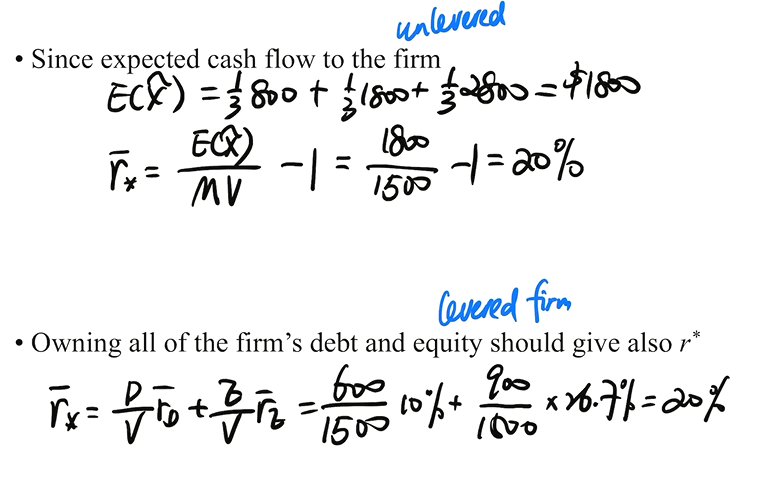 unlevered
• Since expected cash flow to the firm
E(X̃) = 1/3 800 + 1/3 1800 + 1/3 2800 = $1800
r̄* = E(X̃)/MV - 1 = 1800/1500 - 1 = 20%
levered firm
• Owning all of the firm's debt and equity should give also r*
r̄* = D/V r̄D + E/V r̄E = 600/1500 10% + 900/1500 × 26.7% = 20%